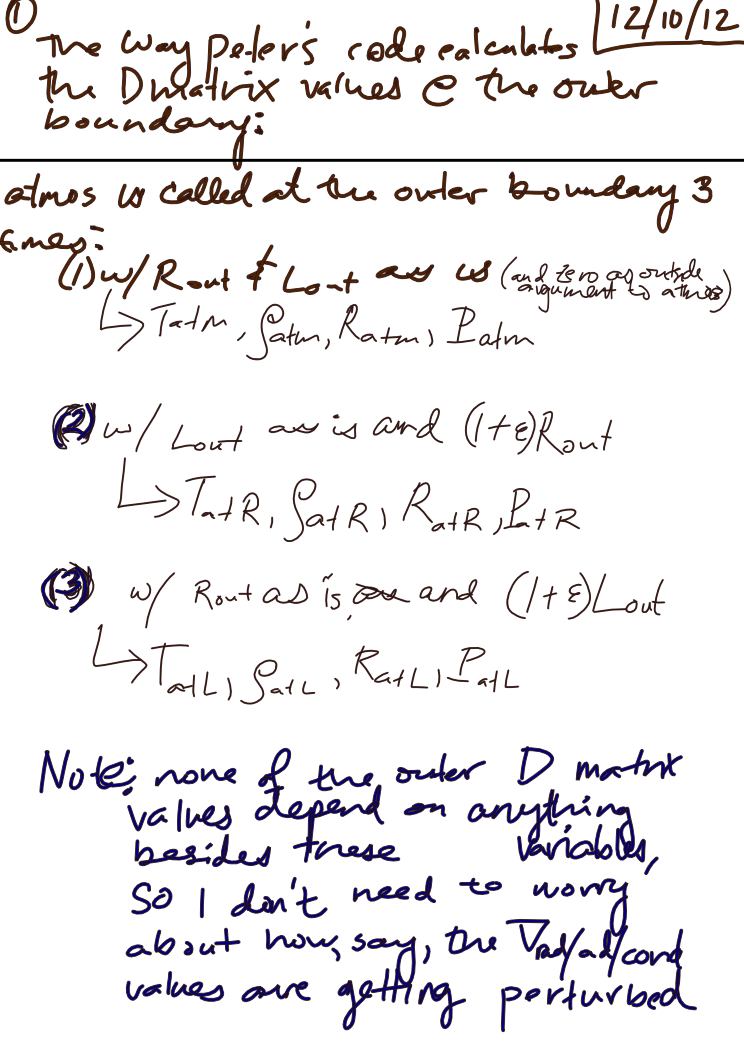 ① 12/10/12
The way Peter's code calculates
the D matrix values @ the outer
boundary:
atmos is called at the outer boundary 3
times:
(1) w/ Rout & Lout as is (and zero as outside
argument to atmos)
↳ Tatm, ρatm, Ratm, Patm
(2) w/ Lout as is and (1+ε)Rout
↳ TatR, ρatR, RatR, PatR
(3) w/ Rout as is, and (1+ε)Lout
↳ TatL, ρatL, RatL, PatL
Note: none of the outer D matrix
values depend on anything
besides these variables,
so I don't need to worry
about how, say, the ∇rad/ad/cond
values are getting perturbed